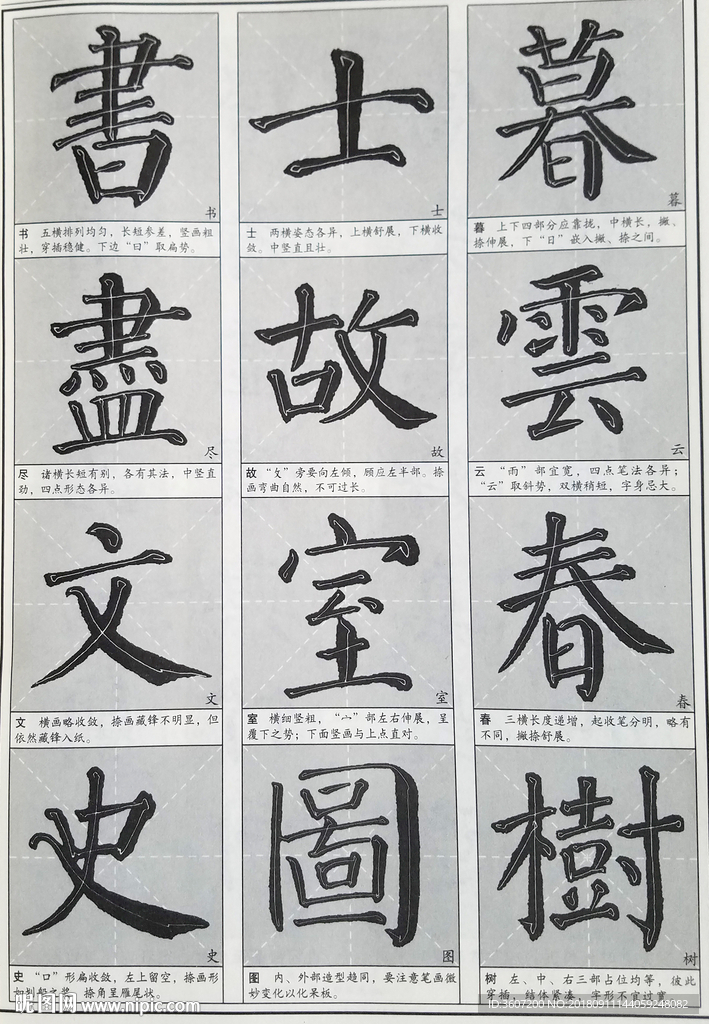 書
书
书 五横排列均匀，长短参差，竖画粗
壮，穿插稳健。下边“曰”取扁势。
士
士
士 两横姿态各异，上横舒展，下横收
敛。中竖直且壮。
暮
暮
暮 上下四部分应靠拢，中横长，撇、
捺伸展，下“日”嵌入撇、捺之间。
盡
尽
尽 诸横长短有别，各有其法，中竖直
劲，四点形态各异。
故
故
故 “攵”旁要向左倾，顾应左半部。捺
画弯曲自然，不可过长。
雲
云
云 “雨”部宜宽，四点笔法各异；
“云”取斜势，双横稍短，字身忌大。
文
文
文 横画略收敛，捺画藏锋不明显，但
依然藏锋入纸。
室
室
室 横细竖粗，“宀”部左右伸展，呈
覆下之势；下面竖画与上点直对。
春
春
春 三横长度递增，起收笔分明，略有
不同，撇捺舒展。
史
史
史 “口”形扁收敛，左上留空，捺画形
如划船之桨，捺角呈雁尾状。
圖
图
图 内、外部造型趋同，要注意笔画微
妙变化以化呆板。
樹
树
树 左、中、右三部占位均等，彼此
穿插，结体紧凑，字形不宜过宽
昵图网 www.nipic.com
ID:3607200 NO:20180911144059248082